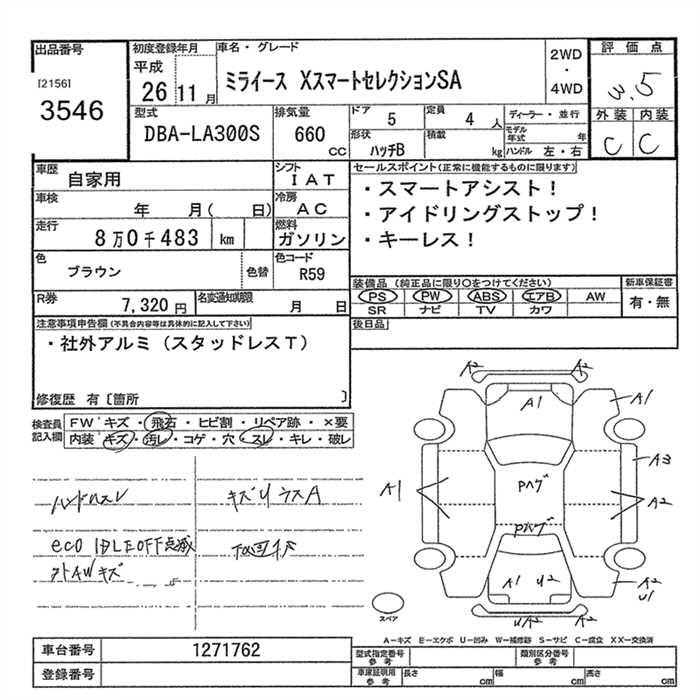 出品番号
[2156]
3546
初度登録年月
平成
26 11 月
車名・グレード
ミライース XスマートセレクションSA
2WD
・
4WD
評価点
3.5
外装 内装
C C
型式
DBA-LA300S
排気量
660
CC
ドア
5
定員
4 人
ディーラー・並行
形状
ハッチB
積載
kg
モデル年式
年
ハンドル 左・右
車歴
自家用
シフト
IAT
車検
年 月( 日)
冷房
AC
走行
8万0千483 km
燃料
ガソリン
色
ブラウン
色替
色コード
R59
R券
7,320円
名変通知期限
月 日
セールスポイント(正常に機能するものに限ります)
・スマートアシスト!
・アイドリングストップ!
・キーレス!
装備品(純正品に限り○をつけてください)
PS PW ABS エアB AW
SR ナビ TV カワ
新車保証書
有・無
後日品
注意事項申告欄(不具合内容等は具体的に記入して下さい)
・社外アルミ(スタッドレスT)
修復歴 有〔箇所 〕
検査員記入欄
FW キズ・飛石・ヒビ割・リペア跡・×要
内装 キズ・汚レ・コゲ・穴・スレ・キレ・破レ
ハンドルスレ
キズリウスA
eco IDLE OFF点滅
下回サビ
外AWキズ
A2 A2
A1
A1
A3
Pハゲ
A1
A2
Pハゲ
A1 U2
A2
U1
UA2 A2
スペア
A-キズ E-エクボ U-凹み W-補修跡 S-サビ C-腐食 XX-交換済
車台番号
1271762
登録番号
型式指定番号
参考
類別区分番号
参考
車庫証明用
参考
長さ cm
幅 cm
高さ cm